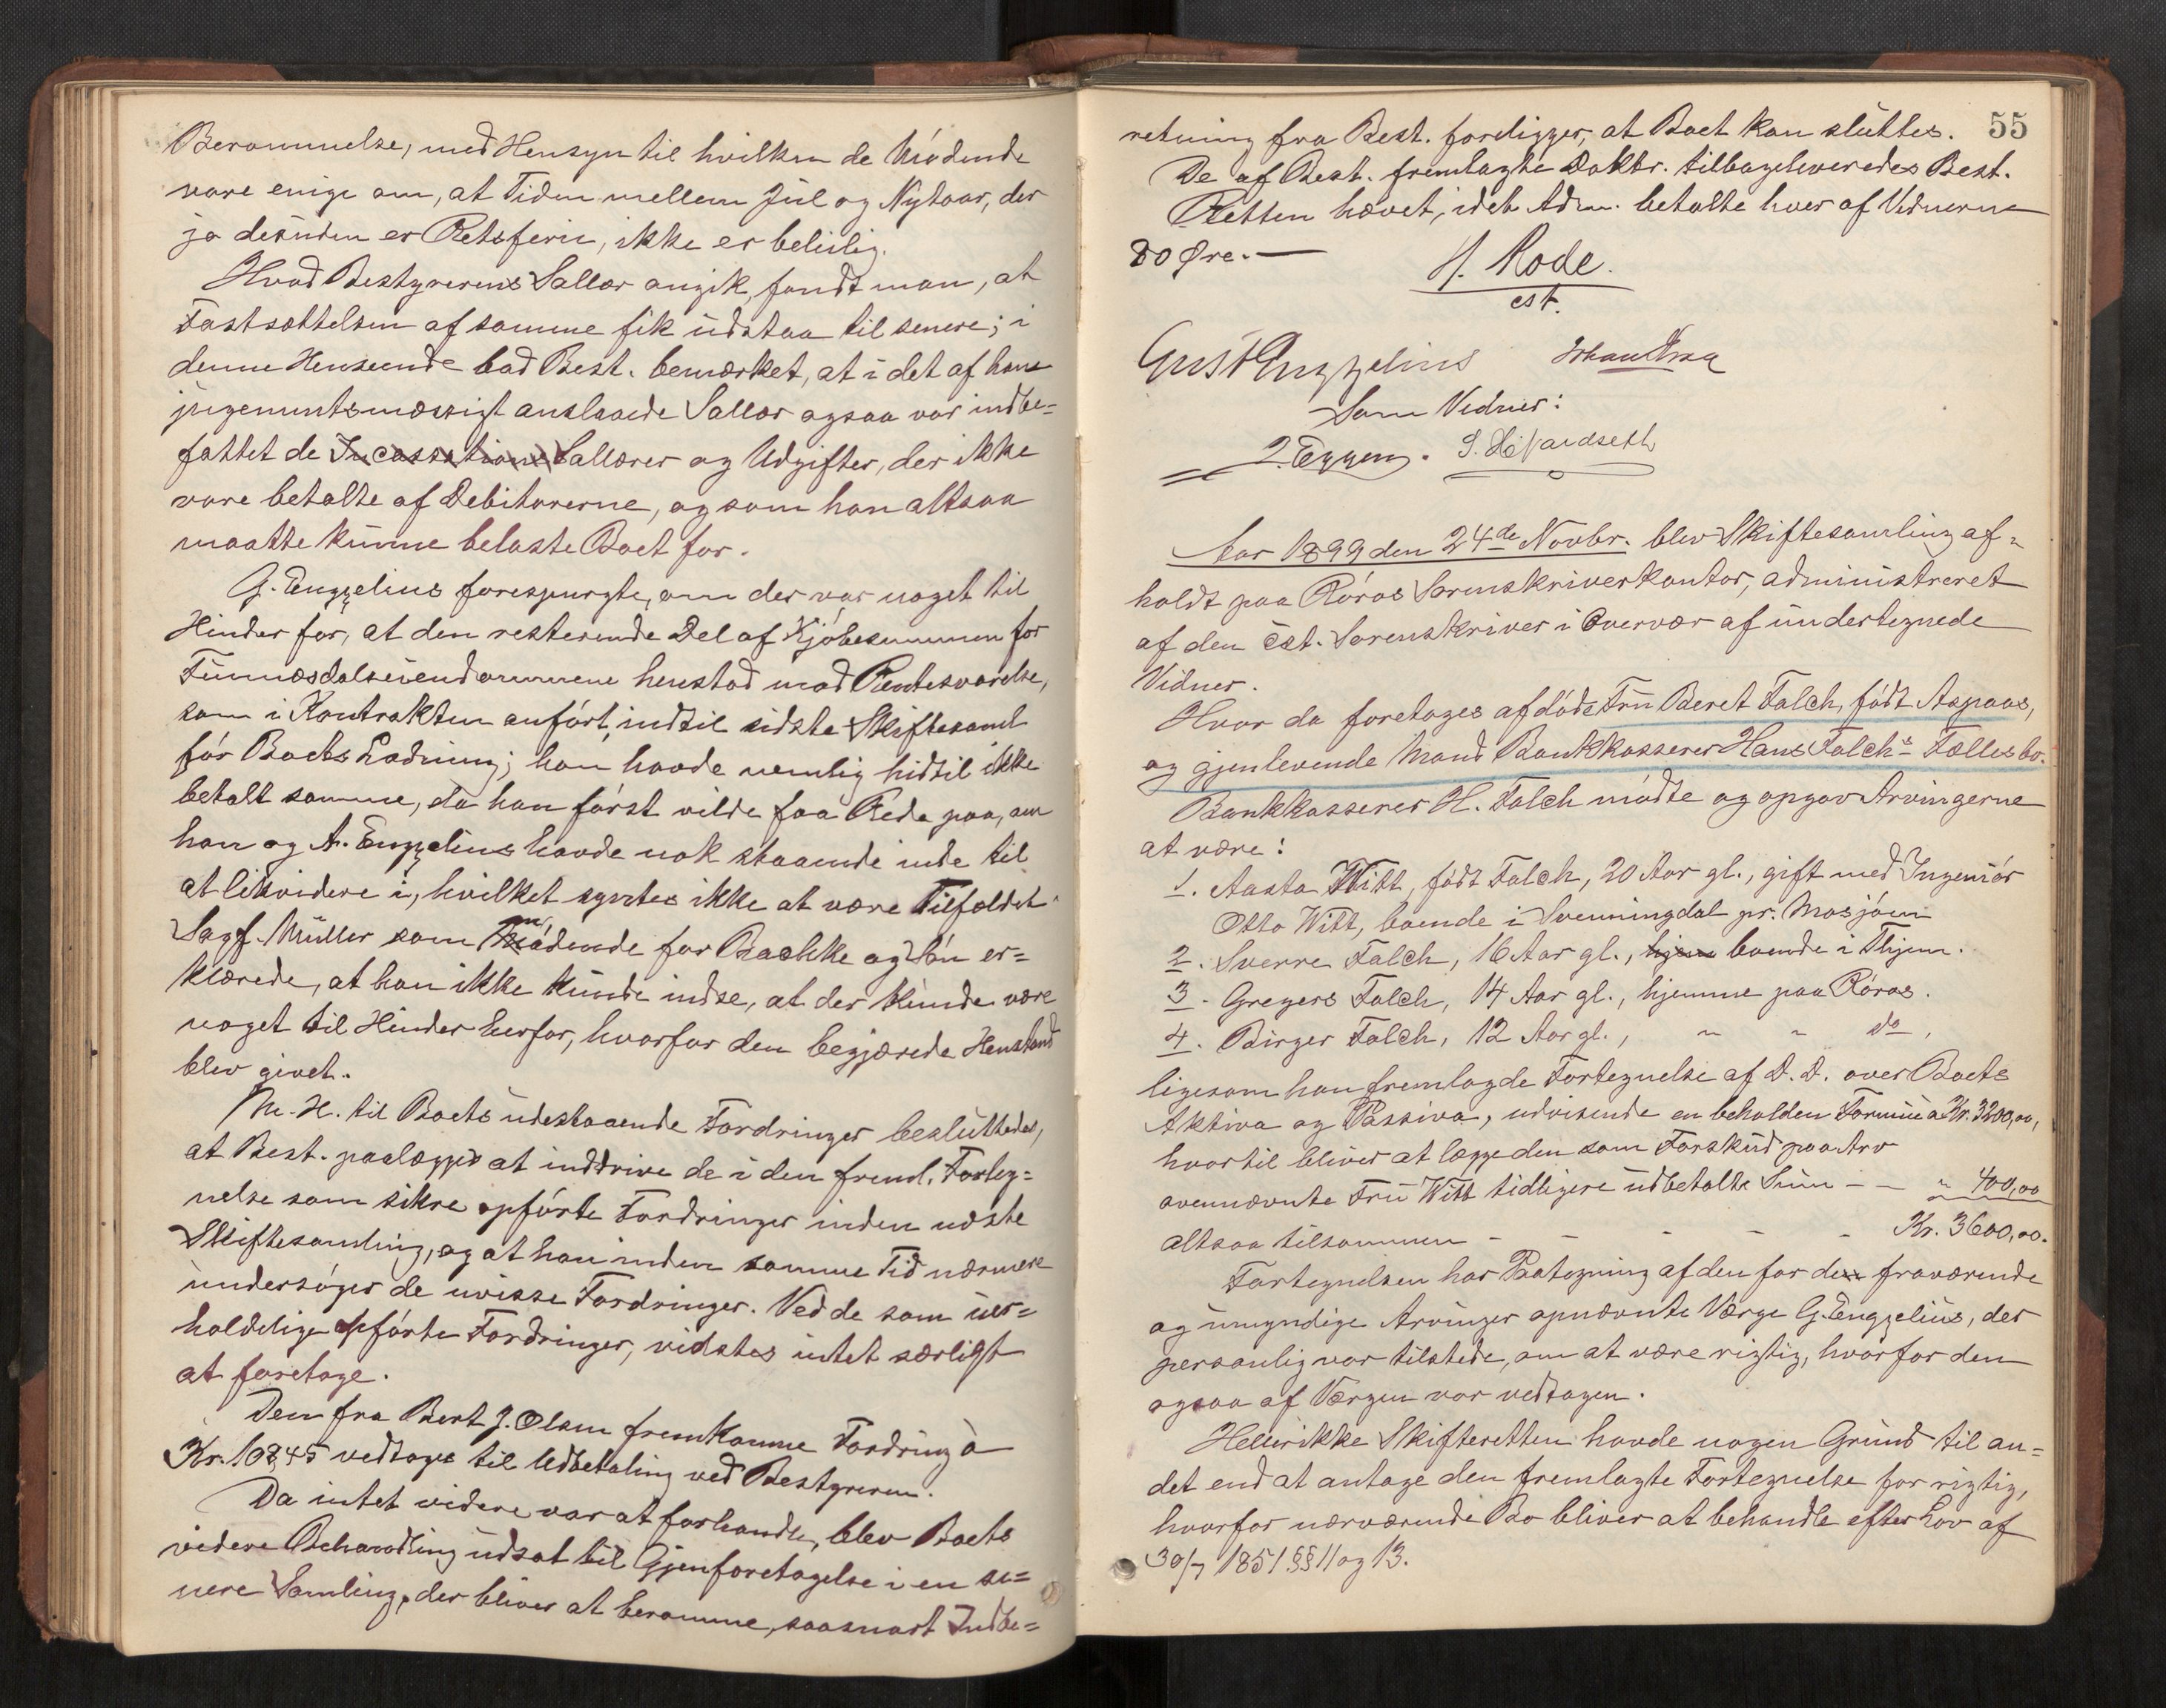 Berammelse, med Hensyn til hvilken de Mødende
vare enige om, at Tiden mellem Jul og Nytaar, der
jo desuden er Retsferie, ikke er beleilig.
Hvad Bestyrerens Sallær angik, fandt man, at
Fastsættelsen af samme fik udstaa til senere; i
denne Henseende bad Best. bemærket, at i det af ham
jugementsmæssigt anslaaede Sallær ogsaa var indbe=
fattet de Incassations Sallærer og Udgifter, der ikke
vare betalte af Debitorerne, og som han altsaa
maatte kunne belaste Boet for.
G. Engzelius forespurgte, om der var noget til
Hinder for, at den resterende Del af Kjøbesummen for
Tunnæsdalseiendommene henstod mod Rentesvarelse,
som i Kontrakten anført, indtil sidste Skiftesaml
før Boets Slutning; han havde nemlig hidtil ikke
betalt samme, da han først vilde faa Rede paa, om
han og A. Engzelius havde nok staaende inde til
at likvidere i, hvilket syntes ikke at være Tilfældet.
Sagf. Müller som Mødende for Bachke og Søn er=
klærede, at han ikke kunde indse, at der kunde være
noget til Hinder herfor, hvorfor den begjærede Henstand
blev givet.
M. H. til Boets udestaaende Fordringer besluttedes,
at Best. paalægges at inddrive de i den freml. Forteg=
nelse som sikre opførte Fordringer inden næste
Skiftesamling, og at han inden samme Tid nærmere
undersøger de uvisse Fordringer. Ved de som uer=
holdelige opførte Fordringer, vidstes intet særligt
at foretage.
Den fra Bert J. Olsen fremkomne Fordring à
Kr. 108,45 vedtoges til Udbetaling ved Bestyreren.
Da intet videre var at forhandle, blev Boets
videre Behandling udsat til Gjenforetagelse i en se=
nere Samling, der bliver at beramme, saasnart Indbe=
55
retning fra Best. foreligger, at Boet kan sluttes.
De af Best. fremlagte Doktr. tilbageleveredes Best.
Retten hævet, idet Adm. betalte hver af Vidnerne
80 Øre.—
H. Rode.
cst.
Gust Engzelius
Som Vidner:
J. Eggen.
Aar 1899 den 24de Novbr. blev Skiftesamling af=
holdt paa Røros Sorenskriverkontor, administreret
af den cst. Sorenskriver i Overvær af undertegnede
Vidner.
Hvor da foretoges afdøde Fru Beret Falch, født Aspaas,
og gjenlevende Mand Bankkasserer Hans Falchs Fællesbo.
Bankkasserer H. Falch mødte og opgav Arvingerne
at være:
1. Aasta Witt, født Falch, 20 Aar gl., gift med Ingeniør
Otto Witt, boende i Svenningdal pr. Mosjøen
2. Sverre Falch, 16 Aar gl., hjem boende i Thjem.
3. Gregers Falch, 14 Aar gl., hjemme paa Røros.
4. Birger Falch, 12 Aar gl., " " do,
ligesom han fremlagde Fortegnelse af D. D. over Boets
Aktiva og Passiva, udvisende en beholden Formue à Kr. 3200,00,
hvortil bliver at lægge den som Forskud paa Arv
ovennævnte Fru Witt tidligere udbetalte Sum - - " 400,00
altsaa tilsammen - - - - - Kr. 3600,00.
Fortegnelsen har Paategning af den for den fraværende
og umyndige Arvinger opnævnte Værge G. Engzelius, der
personlig var tilstede, om at være rigtig, hvorfor den
ogsaa af Værgen var vedtagen.
Heller ikke Skifteretten havde nogen Grund til an=
det end at antage den fremlagte Fortegnelse for rigtig,
hvorfor nærværende Bo bliver at behandle efter Lov af
30/7 1851 §§ 11 og 13.